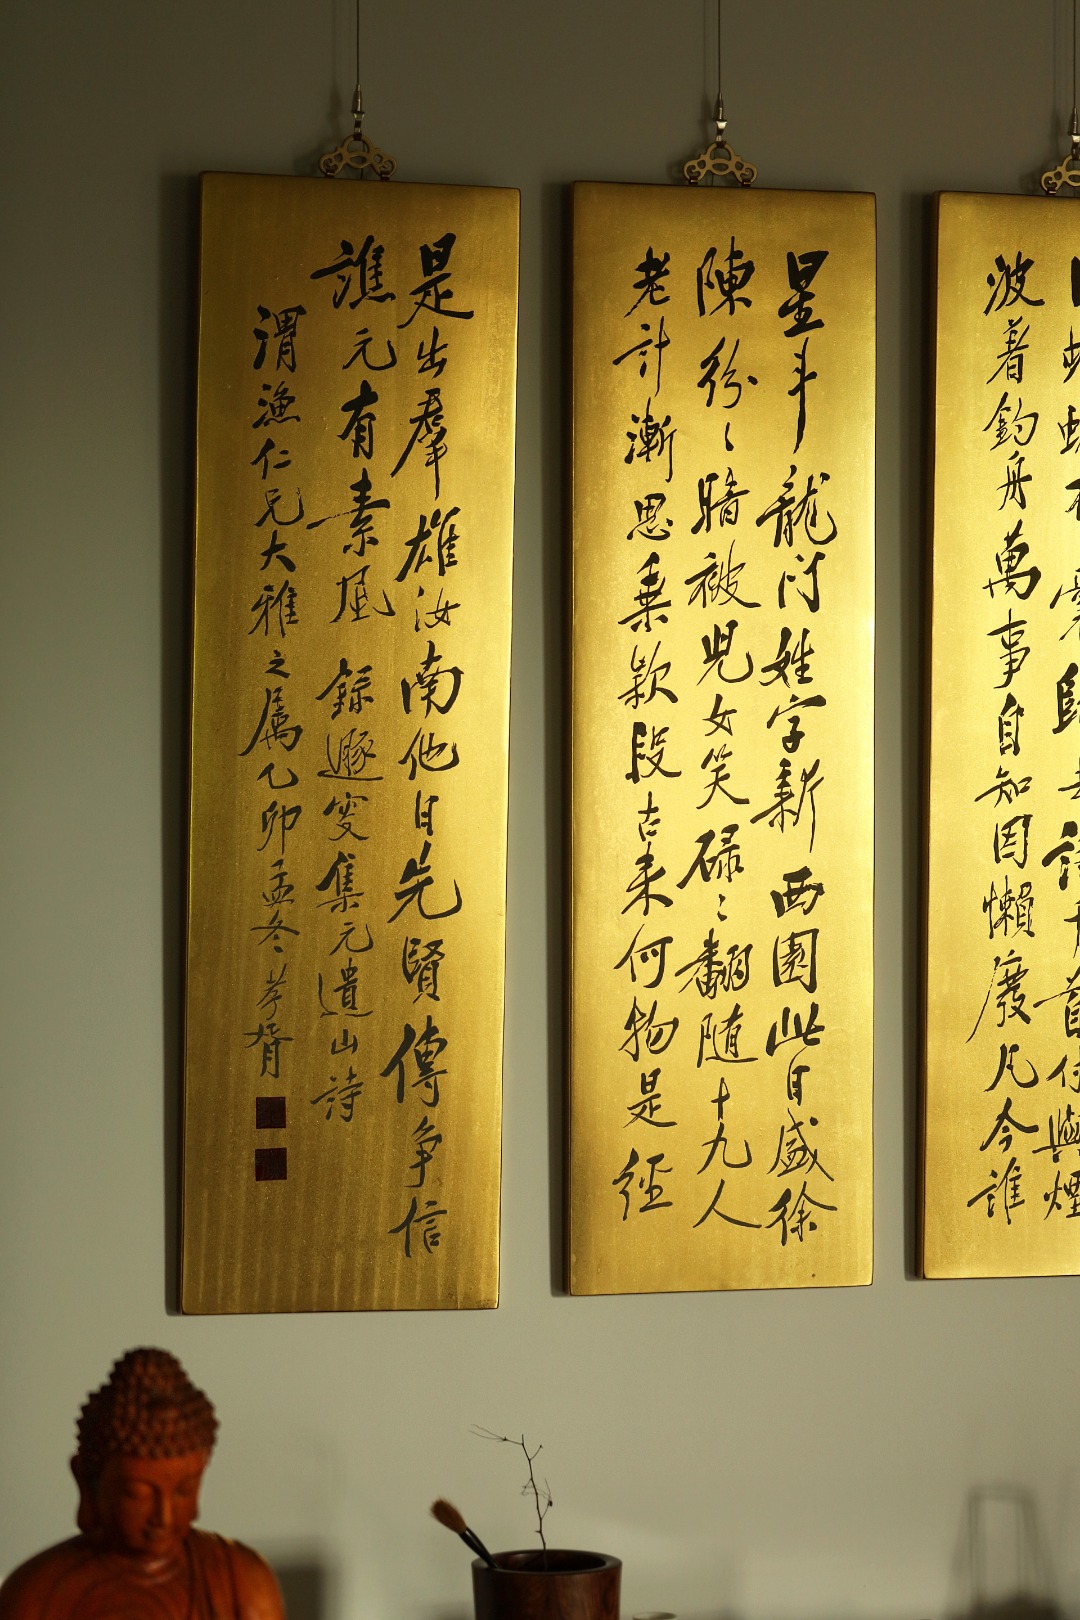 何與煙
波着釣舟萬事自知因懶廢凡今誰
星斗龍門姓字新西園此日盛徐
陳紛〻暗被兒女笑碌〻翻隨十九人
老計漸思乘款段古来何物是經
是出羣雄汝南他日先賢傳爭信
譙元有素風 錄遯叟集元遺山詩
渭漁仁兄大雅之屬乙卯孟冬孝胥